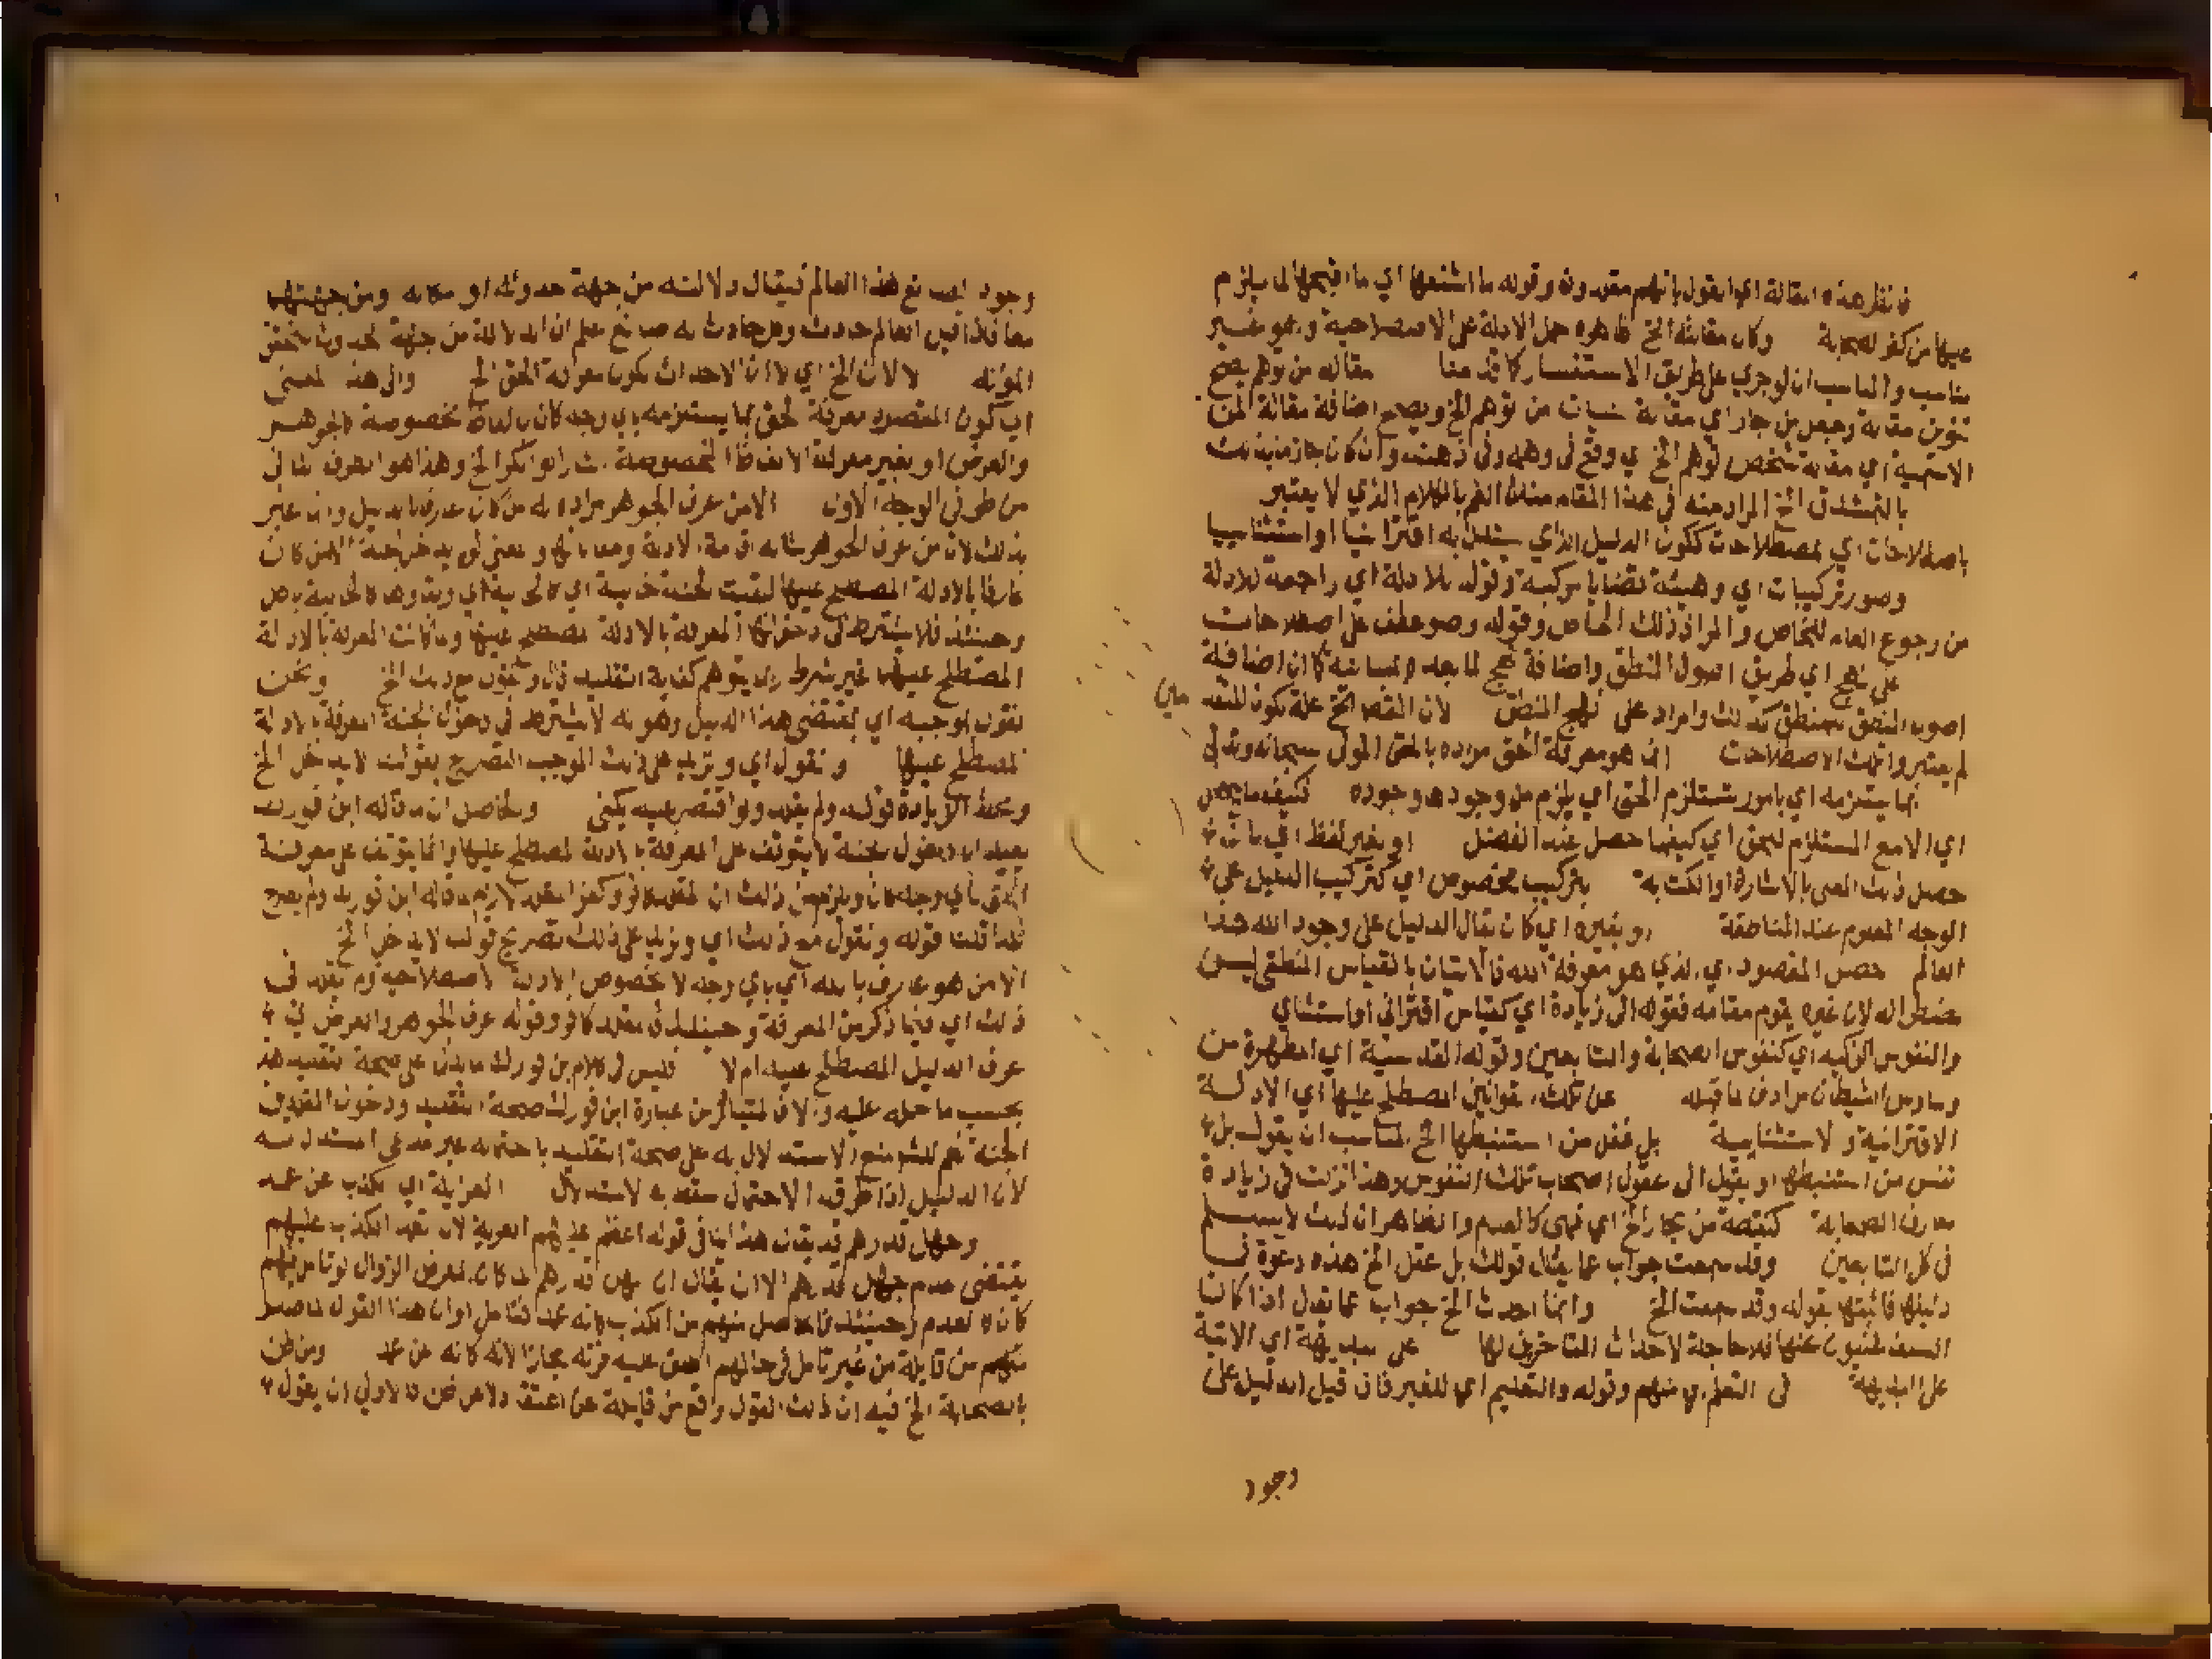 فانظر هذه المقالة اي القول بانهم مقلدون وقوله ما اشنعها اي ما اقبحها لما يلزم
عليها من كفر الصحابة وكان مقالته الخ ظاهره حمل الادلة على الاصطلاحية وهو غير
مناسب والمناسب ان لو جري على طريق الاستفسار كما قدمنا مقاله من توهم يصح
تنوين مقالة وجعل من جار اي مقالة من توهم الخ ويصح اضافة مقالة لمن
الاسمية اي مقالة شخص توهم الخ اي وقع في وهمه وفي ذهنه وان كان جازما بذلك
بالتشدق الخ المراد منه في هذا المقام الفم بالكلام الذي لا يعتبر
باصطلاحات اي مصطلاحات ككون الدليل الذي يستدل به اقترانيا او استثنائيا
وصور تركيبات اي وهيئة قضايا مركبة وقوله للادلة اي راجعة للادلة
من رجوع العام للخاص والمراد ذلك الخاص وقوله وصور عطف على اصطلاحات
على نهج اي طريق اصول المنطق واضافة نهج لما بعده كما ان اضافة
اصول المنطق للمنطق كذلك والمراد على نهج المنطق لان المقصد الخ علة لكون السلف
لم يعتبروا تلك الاصطلاحات انما هو معرفة الحق مراده بالحق المولى سبحانه وتعالى
بما يستلزمه اي بامور تستلزم الحق اي يلزم من وجودها وجوده فكيف ما حصل
اي الامر المستلزم للحق اي كيفما حصل عند الفضل او بغير لفظ اي بان
حصل ذلك المعنى بالاشارة او الكتابة بتركيب مخصوص اي كتركيب الدليل على
الوجه المعلوم عند المناطقة او بغيره اي كان يقال الدليل على وجود الله هذا
العالم حصل المقصود اي الذي هو معرفة الله فالاتيان بالقياس المنطقي ليس
مضطرا له لان غيره يقوم مقامه فقوله الى زيادة اي كقياس اقتراني او استثنائي
والنفوس الزكية اي كنفوس الصحابة والتابعين وقوله القدسية اي المطهرة من
وساوس الشيطان مرادف لما قبله عن تلك القوانين المصطلح عليها اي الادلة
الاقترانية والاستثنائية بل عقل من استنبطها الخ المناسب ان يقول بل
نفس من استنبطها او يقول الى عقول اصحاب تلك النفوس وهذا نزلت في زيادة
معارف الصحابة كنقطة من بحار الخ اي فهي كالعدم والظاهر ان ذلك لا يسلم
في كل التابعين وقد سمعت جواب عما يقال قولك بل عقل الخ هذه دعوة فما
دليلها فاثبتها بقوله وقد سمعت الخ وانما احدث الخ جواب عما يقال اذا كان
السلف غنيون عنها فلا حاجة لاحداث المتاخرين لها على بديهة اي الاتية
على البديهة في التعلم اي منهم وقوله والتعليم اي للغير فان قيل الدليل على
وجود
وجود الصانع هذا العالم فيقال دلالته من جهة حدوثه او مكانه ومن جهتهما
معا فاذا قيل العالم حادث وكل حادث له صانع علم ان الدلالة من جهة الحدوث فتخف
المؤنة لا لان الخ اي لا ان الاحداث لكون معرفة الحق الخ والى هذا المعنى
اي كون المقصود معرفة الحق بما يستلزمه باي وجه كان بالفاظ مخصوصة كالجوهر
والعرض او بغير معرفة الالفاظ المخصوصة اشار ابو بكر الخ وهذا هو المعرف
من طرفي الوجه الاول الا من عرف الجوهر مراده به من كان عارفا بالدليل وانما عبر
بذلك لان من عرف الجوهر شانه اقامة الادلة ومعنى لو يدخل الجنة الا من كان
عارفا بالادلة المصطلح عليها لبقيت الجنة خالية اي كالخالية اي
وحينئذ فلا يشترط في دخولها المعرفة بالادلة المصطلح عليها ولما كانت المعرفة بالادلة
المصطلح عليها غير شرط ربما يتوهم كفاية التقليد قال ونقول مع ذلك الخ ونحن
نقول بموجبه اي بمقتضى هذا الدليل وهو انه لا يشترط في دخول الجنة المعرفة بالادلة
المصطلح عليها ونقول اي ونزيد على ذلك الموجب التصريح بقولنا لا يدخل الخ
ومحط الزيادة قوله ولم يقلد ولو اقتصر عليه يكفي والحاصل ان ما قاله ابن فورك
يفيد ان دخول الجنة لا يتوقف على المعرفة بالادلة المصطلح عليها وانما يتوقف على معرفة
الحق باي وجه كان ويلزم من ذلك ان المقلد كافر وكفر المقلد لازم لما قاله ابن فورك ولم يصرح
به فلذا قلت قوله ونقول مع ذلك اي ونزيد على ذلك تصريح قولنا لا يدخل الخ
الا من هو عارف بالله اي باي وجه لا بخصوص الادلة الاصطلاحية ولم يقلد في
ذلك اي فيما ذكر من المعرفة وحينئذ فالمقلد كافر وقوله عرف الجوهر والعرض اي
عرف الدليل المصطلح عليه ام لا فليس في كلام ابن فورك ما يدل على صحة التقليد هذا
بحسب ما حمله عليه والا فالمتبادر من عبارة ابن فورك صحة التقليد ودخول المقلد في
الجنة نعم للشم منع الاستدلال به على صحة التقليد باحتماله غير مدعى المستدل به
لان الدليل اذا طرقه الاحتمال سقط به الاستدلال الفرية اي الكذب عن عمد
وجهل قدرهم قد يقال هذا ينافي قوله اعظم عليهم الفرية لان تعمد الكذب عليهم
يقتضي عدم جهل قدرهم الا ان يقال ان جهل قدرهم لما كان بمعرض الزوال لو تامر فيهم
كان كالعدم وحينئذ فالحاصل منهم من الكذب كانه عمد فتامل او ان هذا القول لما صدر
منهم من قايله من غير تامل في حالهم اطلق عليه فرية مجازا لانه كانه عن عمد ومن ظن
بالصحابة الخ فيه ان ذلك القول واقع من قايله عن اعتقاد لا عن ظن فالاولى ان يقول